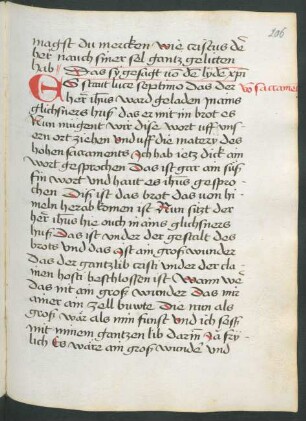 206
magst du mercken wie cristus der
her nauch siner sel gantz gelitten
hab Das sy gesagt vo de lyde xpi
Es staut luce septimo das der
vo sacrament
her ihus ward geladen in ains
glichsners hus das er mit im brot es
Nun mugent wir dise wort uff uns
ern ort ziehen und uff die matery des
hohen sacraments Ich hab ietz dick am
wort gesprochen Das ist gar ain süs
sin wort und haut es ihus gespro
chen Dis ist das brot das von hi
meln herab komen ist Nun sitzt der
her ihus hie ouch in ains glichsners
hus Das ist under der gestalt des
brots und das Ist ain gros wunder
das der gantz lib cristi under der clai
nen hosti beschlossen ist Wann we
das nit ain gros wunder Das mir
ainer ain zell buwte Die nun als
gros wär als min funst und ich sess
mit minem gantzen lib darin Ja fry
lich Es wäre ain gros wunder und